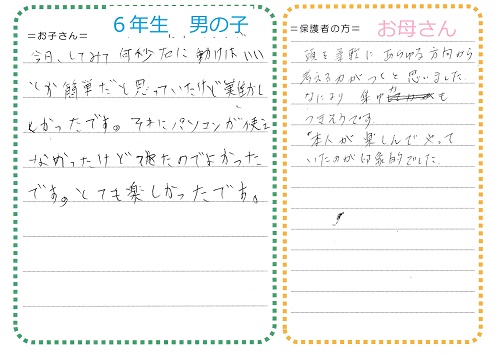 =お子さん=
6年生 男の子
今日、してみて何秒右に動けばいい
とか簡単だと思っていたけど実動し
かったです。それにパソコンが使え
なかったけどて来たのでよかった
です。とても楽しかったです。
=保護者の方=
お母さん
頭を柔軟に あらゆる方向から
考える力がつくと思いました.
なにより 集中力も
つきそうです
本人が楽しんでやって
いたのが印象的でした.